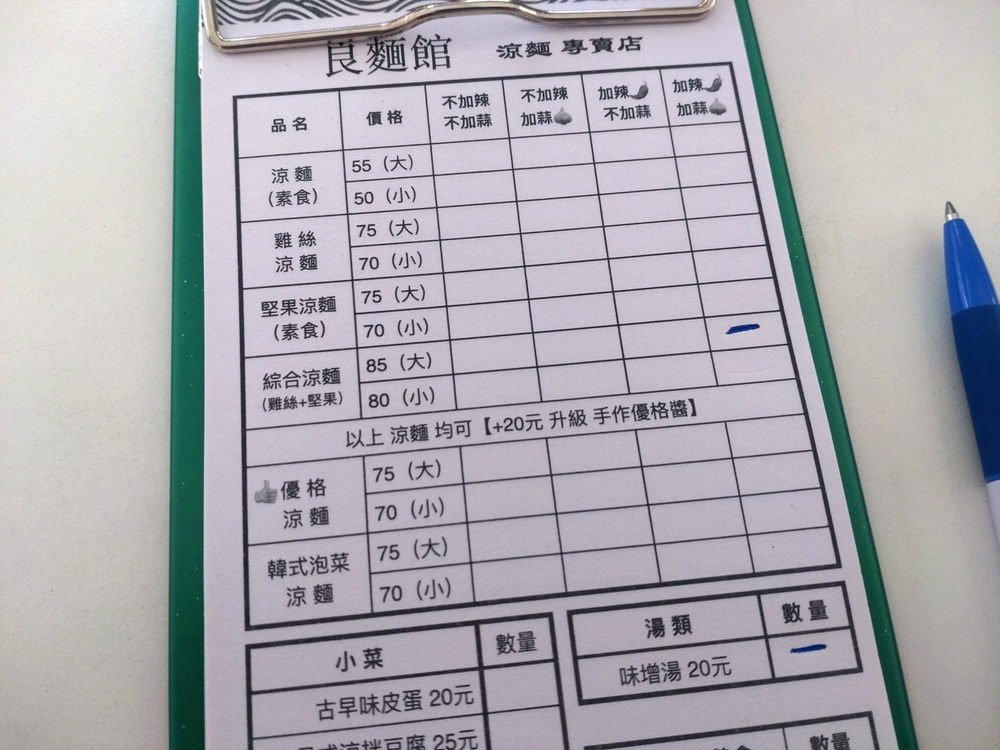 良麵館 涼麵 專賣店
品名 價格 不加辣 不加蒜 不加辣 加蒜 加辣 不加蒜 加辣 加蒜
涼麵 (素食) 55（大）
50（小）
雞絲 涼麵 75（大）
70（小）
堅果涼麵 (素食) 75（大）
70（小） 一
綜合涼麵 (雞絲+堅果) 85（大）
80（小）
以上 涼麵 均可【+20元 升級 手作優格醬】
優格 涼麵 75（大）
70（小）
韓式泡菜 涼麵 75（大）
70（小）
小菜 數量
古早味皮蛋 20元
式涼拌豆腐 25元
湯類 數量
味增湯 20元 一
數量